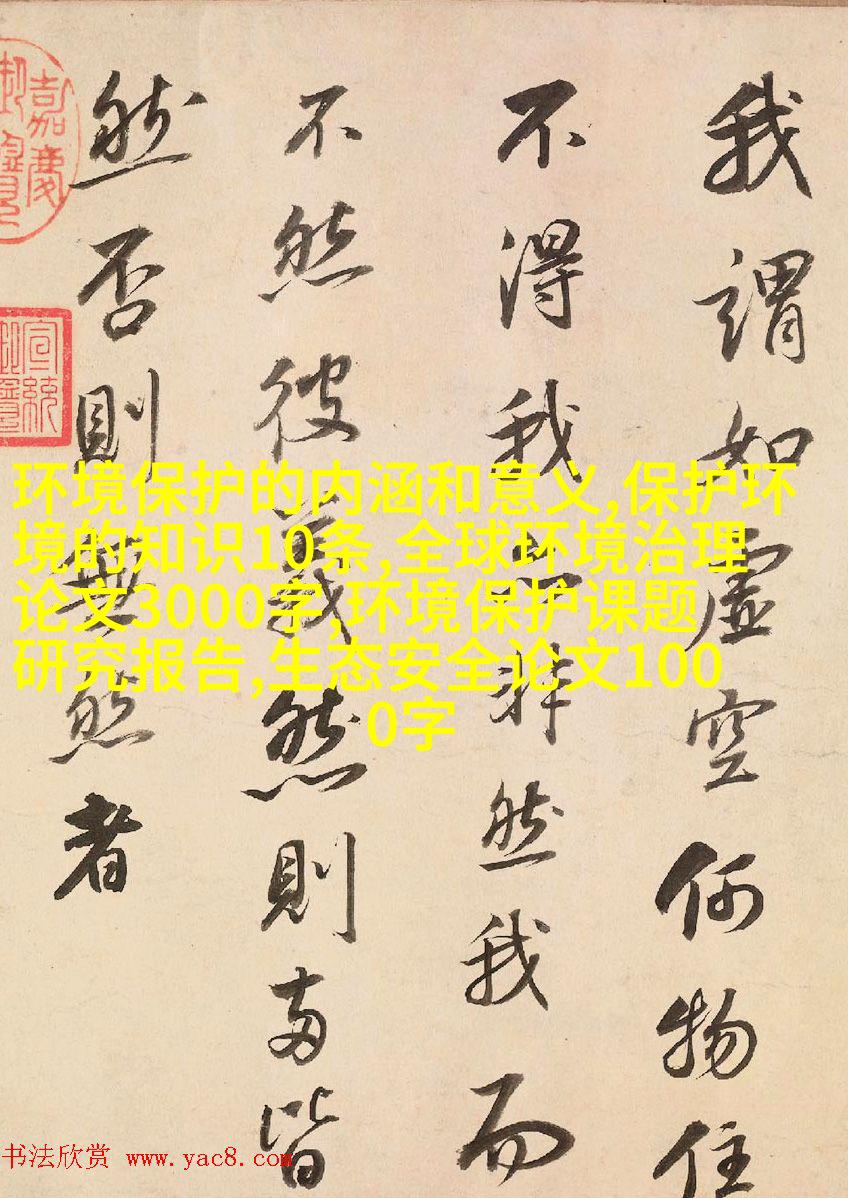 我謂如虛空何物住
不得我亦非然我而
不然彼義然則兩皆
然否則無然者
嘉慶
御覽
宣統
环境保护的内涵和意义,保护环
境的知识10条,全球环境治理
论文3000字,环境保护课题
研究报告,生态安全论文100
0字
书法欣赏 www.yac8.com